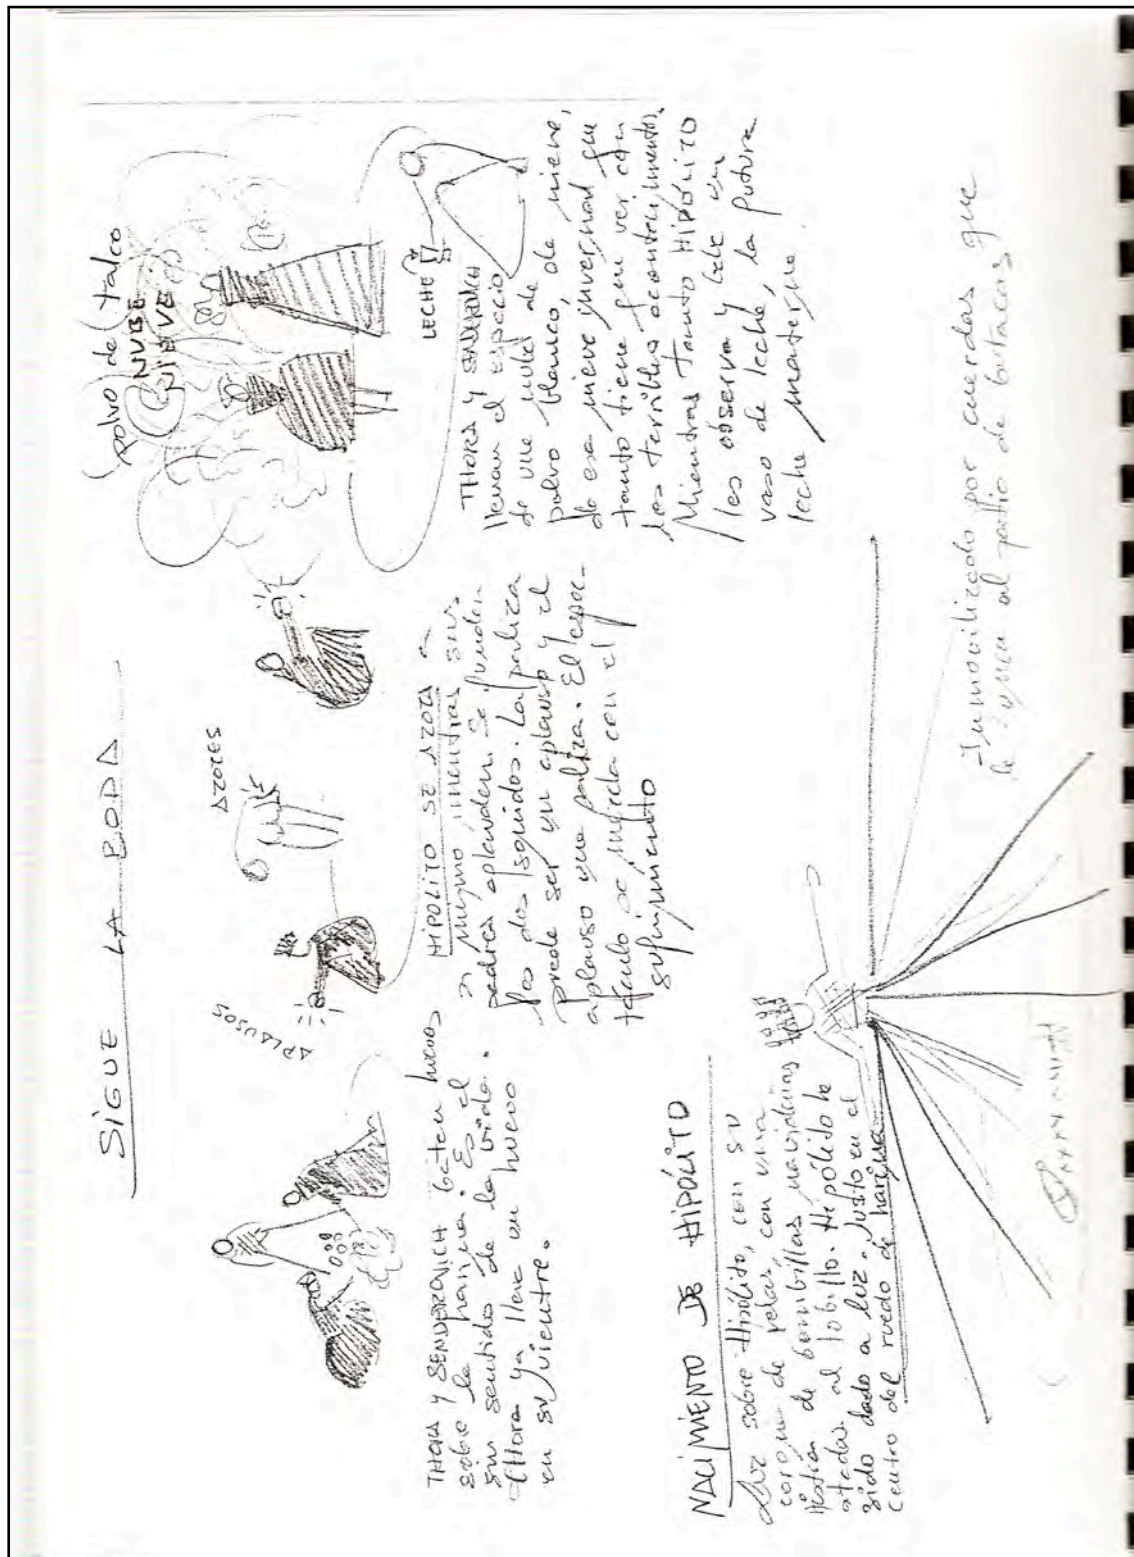 SIGUE LA BODA
APLAUSOS
AZOTES
(polvo de talco
NUBE
NIEVE
LECHE
THORA Y SENDEROVICH baten huevos
sobre la harina. Es el
sin sentido de la vida.
THora ya lleva un huevo
en su vientre.
HIPÓLITO SE AZOTA a
si mismo mientras sus
padres aplauden. Se funden
los dos sonidos. La paliza
puede ser un aplauso y el
aplauso una paliza. El espec-
táculo se mezcla con el
sufrimiento
THORA Y SENDEROVICH
llenan el espacio
de una nube de
polvo blanco, de nieve,
de esa nieve invernal que
tanto tiene que ver con
los terribles acontecimientos.
Mientras tanto HIPÓLITO
los observa y bebe un
vaso de leche, la futura
leche materna.
NACIMIENTO DE HIPÓLITO
Luz sobre Hipólito, con su
corona de velas, con una
de bombillas navideñas
atadas al tobillo. Hipólito ha
sido dado a luz. Justo en el
centro del ruedo de harina
Inmovilizado por cuerdas que
le al patio de butacas